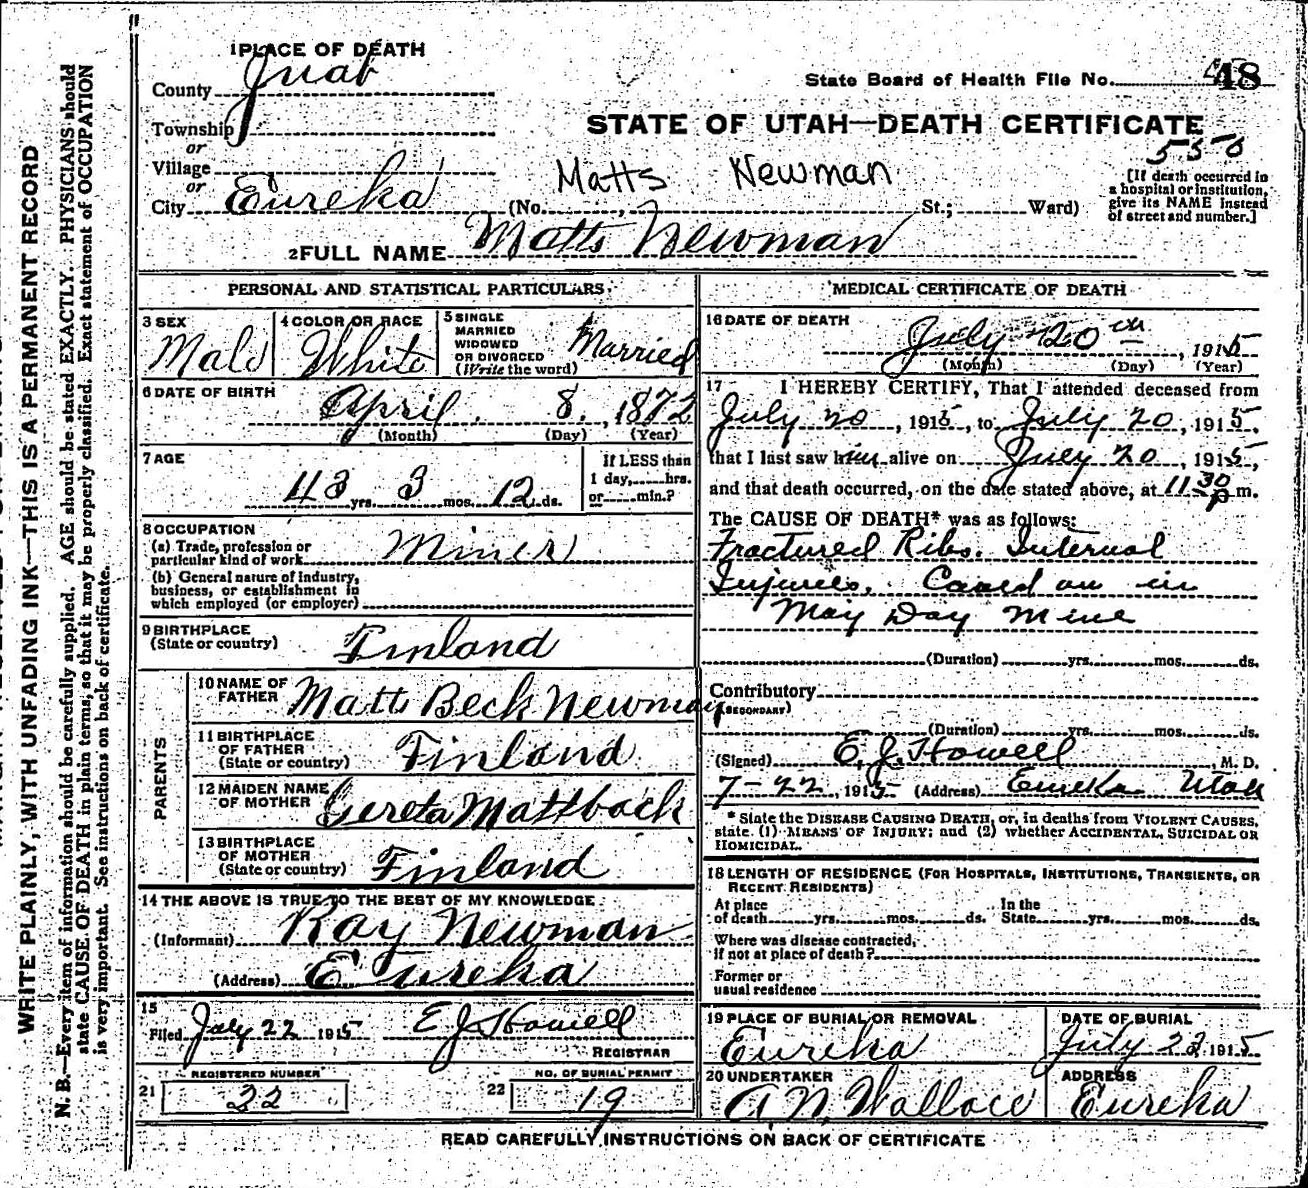 1 PLACE OF DEATH
County Juab
Township
or
Village
or
City Eureka
State Board of Health File No. 48
STATE OF UTAH—DEATH CERTIFICATE
550
Matts Newman
(No. , St.; Ward)
[If death occurred in
a hospital or institution,
give its NAME instead
of street and number.]
2 FULL NAME Matts Newman
PERSONAL AND STATISTICAL PARTICULARS
3 SEX
Male
4 COLOR OR RACE
White
5 SINGLE
MARRIED
WIDOWED
OR DIVORCED
(Write the word)
Married
6 DATE OF BIRTH
April 8, 1872
(Month) (Day) (Year)
7 AGE
43 yrs. 3 mos. 12 ds.
If LESS than
1 day, hrs.
or min.?
8 OCCUPATION
(a) Trade, profession or
particular kind of work Miner
(b) General nature of industry,
business, or establishment in
which employed (or employer)
9 BIRTHPLACE
(State or country) Finland
PARENTS
10 NAME OF
FATHER Matts Beck Newman
11 BIRTHPLACE
OF FATHER
(State or country) Finland
12 MAIDEN NAME
OF MOTHER Gereta Mattback
13 BIRTHPLACE
OF MOTHER
(State or country) Finland
14 THE ABOVE IS TRUE TO THE BEST OF MY KNOWLEDGE
(Informant) Ray Newman
(Address) Eureka
15
Filed July 22 1915 E J Howell
REGISTRAR
REGISTERED NUMBER
21 22
NO. OF BURIAL PERMIT
22 19
MEDICAL CERTIFICATE OF DEATH
16 DATE OF DEATH
July 20th, 1915
(Month) (Day) (Year)
17 I HEREBY CERTIFY, That I attended deceased from
July 20, 1915, to July 20, 1915,
that I last saw him alive on July 20, 1915,
and that death occurred, on the date stated above, at 11 30 p m.
The CAUSE OF DEATH* was as follows:
Fractured Ribs. Internal
Injuries. Caved on in
May Day Mine
(Duration) yrs. mos. ds.
Contributory
(SECONDARY)
(Duration) yrs. mos. ds.
(Signed) E. J. Howell, M. D.
7-22, 1915 (Address) Eureka Utah
* State the DISEASE CAUSING DEATH, or, in deaths from VIOLENT CAUSES,
state (1) MEANS OF INJURY; and (2) whether ACCIDENTAL, SUICIDAL OR
HOMICIDAL.
18 LENGTH OF RESIDENCE (FOR HOSPITALS, INSTITUTIONS, TRANSIENTS, OR
RECENT RESIDENTS)
At place
of death yrs. mos. ds.
In the
State yrs. mos. ds.
Where was disease contracted,
if not at place of death?
Former or
usual residence
19 PLACE OF BURIAL OR REMOVAL
Eureka
DATE OF BURIAL
July 22 1915
20 UNDERTAKER
A N. Wallace
ADDRESS
Eureka
READ CAREFULLY INSTRUCTIONS ON BACK OF CERTIFICATE
WRITE PLAINLY, WITH UNFADING INK—THIS IS A PERMANENT RECORD
N. B.—Every item of information should be carefully supplied. AGE should be stated EXACTLY. PHYSICIANS should
state CAUSE OF DEATH in plain terms, so that it may be properly classified. Exact statement of OCCUPATION
is very important. See instructions on back of certificate.